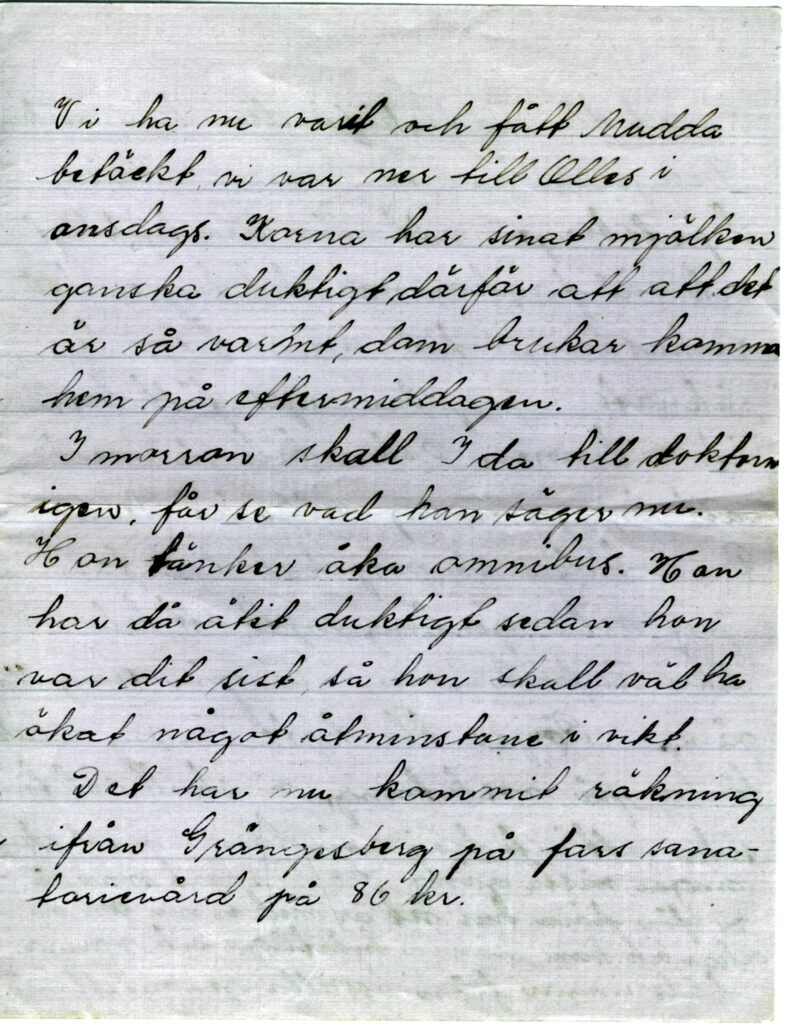 Vi ha nu varit och fått Mudda
betäckt, vi var ner till Olles i
onsdags. Korna har sinat mjölken
ganska duktigt, därför att att det
är så varmt, dom brukar komma
hem på eftermiddagen.
I morron skall Ida till doktorn
igen, får se vad han säger nu.
Hon tänker åka omnibus. Hon
har då ätit duktigt sedan hon
var dit sist, så hon skall väl ha
ökat något åtminstone i vikt.
Det har nu kommit räkning
ifrån Grängesberg på fars sana-
torievård på 86 kr.